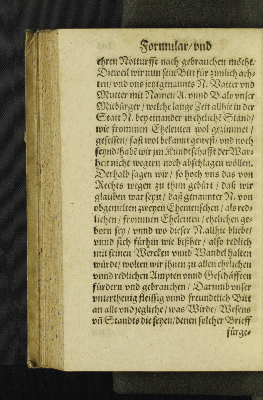 Formular/ vnd
ehren Notturfft nach gebrauchen möcht.
Dieweil wir nun sein Bitt für zimlich ach-
ten/ vnd vns jetztgenants N. Vatter vnd
Mutter mit Namen A. vnnd B. als vnser
Mitbürger/ welche lange Zeit allhie in der
Statt N. bey einander in ehelichē Stand/
wie frommen Eheleuten wol gezimmet/
gesessen/ fast wol bekannt gewest/ vnd noch
seynd/ habē wir jm Kundtschafft der War-
heit nicht wegern noch abschlagen wöllen.
Derhalb sagen wir/ so hoch vns das von
Rechts wegen zu thun gebürt/ daß wir
glauben war seyn/ daß genanter N. von
obgemelten zweyen Ehemenschen/ als red-
lichen/ frommen Eheleuten/ ehelichen ge-
born sey/ vnnd wo dieser N. allhie bliebe/
vnnd sich fürhin wie bißher/ also redlich
mit seinen Wercken vnnd Wandel halten
würde/ wolten wir jhnen zu allen ehrlichen
vnnd redlichen Ampten vnnd Geschäfften
fürdern vnd gebrauchen/ Darumb vnser
vnterthenig fleissig vnnd freundtlich Bitt
an alle vñ jegliche/ was Wirde/ Wesens
vñ Standts die seyen/ denen solcher Brieff
fürge-